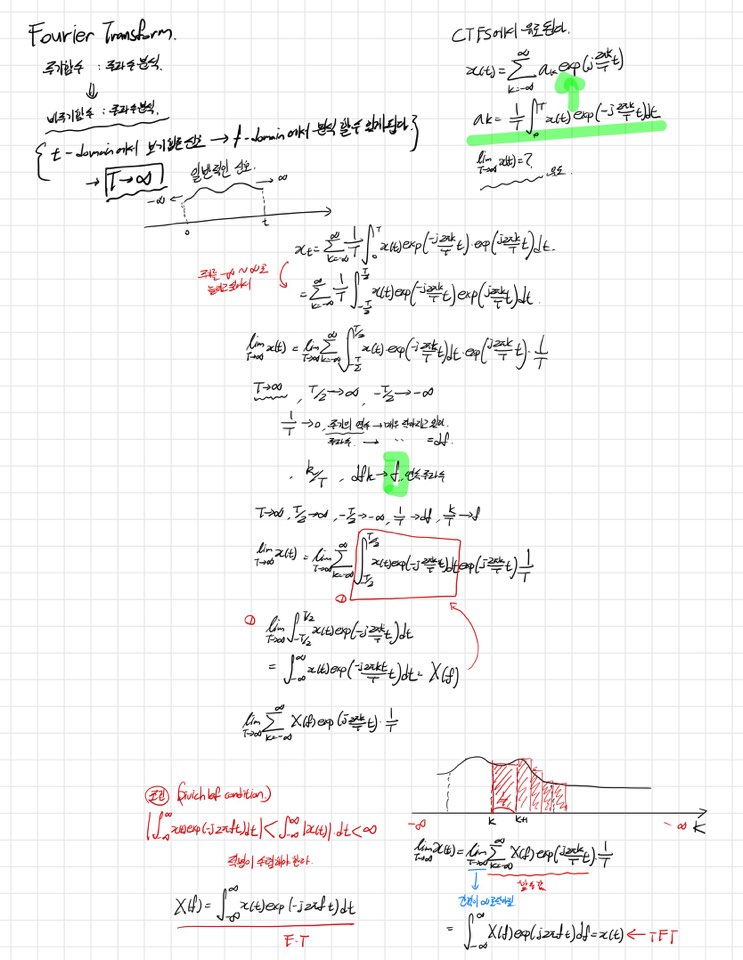 Fourier Transform.
주기함수 : 주파수분석.
⇓
비주기함수 : 주파수분석.
{ t - domain에서 보기 힘든 신호 → f - domain에서 분석할 수 있게 된다. }
→ T→∞
일반적인 신호.
-∞ ← → ∞
0 t
CTFS에서 유도된다.
x(t) = ∑_{k=-∞}^{∞} a_k exp(j 2πk/T t)
a_k = 1/T ∫_0^T x(t) exp(-j 2πk/T t) dt
lim_{T→∞} x(t) = ?
유도.
x_t = ∑_{k=-∞}^{∞} 1/T ∫_0^T x(t) exp(-j2πk/T t) · exp(j2πk/T t) dt.
= ∑_{k=-∞}^{∞} 1/T ∫_{-T/2}^{T/2} x(t) exp(-j2πk/T t) exp(j2πk/T t) dt.
lim_{T→∞} x(t) = lim_{T→∞} ∑_{k=-∞}^{∞} ∫_{-T/2}^{T/2} x(t) · exp(-j2πk/T t) dt · exp(j2πk/T t) · 1/T
T→∞ , T/2→∞ , -T/2→-∞
1/T → 0, 주기의 역수 → 매우 작아지고 있어.
주파수. → 〃 = df
, k/T , df k → f, 연속 주파수
T→∞, T/2→∞, -T/2→-∞, 1/T→df, k/T→f
lim_{T→∞} x(t) = lim_{T→∞} ∑_{k=-∞}^{∞} ∫_{-T/2}^{T/2} x(t) exp(-j2πk/T t) dt exp(j2πk/T t) 1/T
①
① lim_{T→∞} ∫_{-T/2}^{T/2} x(t) exp(-j2πk/T t) dt
= ∫_{-∞}^{∞} x(t) exp(-j2πkt/T) dt = X(f)
lim_{T→∞} ∑_{k=-∞}^{∞} X(f) exp(j2πk/T t) · 1/T
조건 (Divichlet condition)
|∫_{-∞}^{∞} x(t) exp(-j2πft) dt| < ∫_{-∞}^{∞} |x(t)| · dt < ∞
적분이 수렴해야 한다.
X(f) = ∫_{-∞}^{∞} x(t) exp(-j2πft) dt
F.T
-∞ k k+1 -∞ K
lim_{T→∞} x(t) = lim_{T→∞} ∑_{k=-∞}^{∞} X(f) exp(j2πk/T t) · 1/T
= ∫_{-∞}^{∞} X(f) exp(j2πft) df = x(t) ← IFT